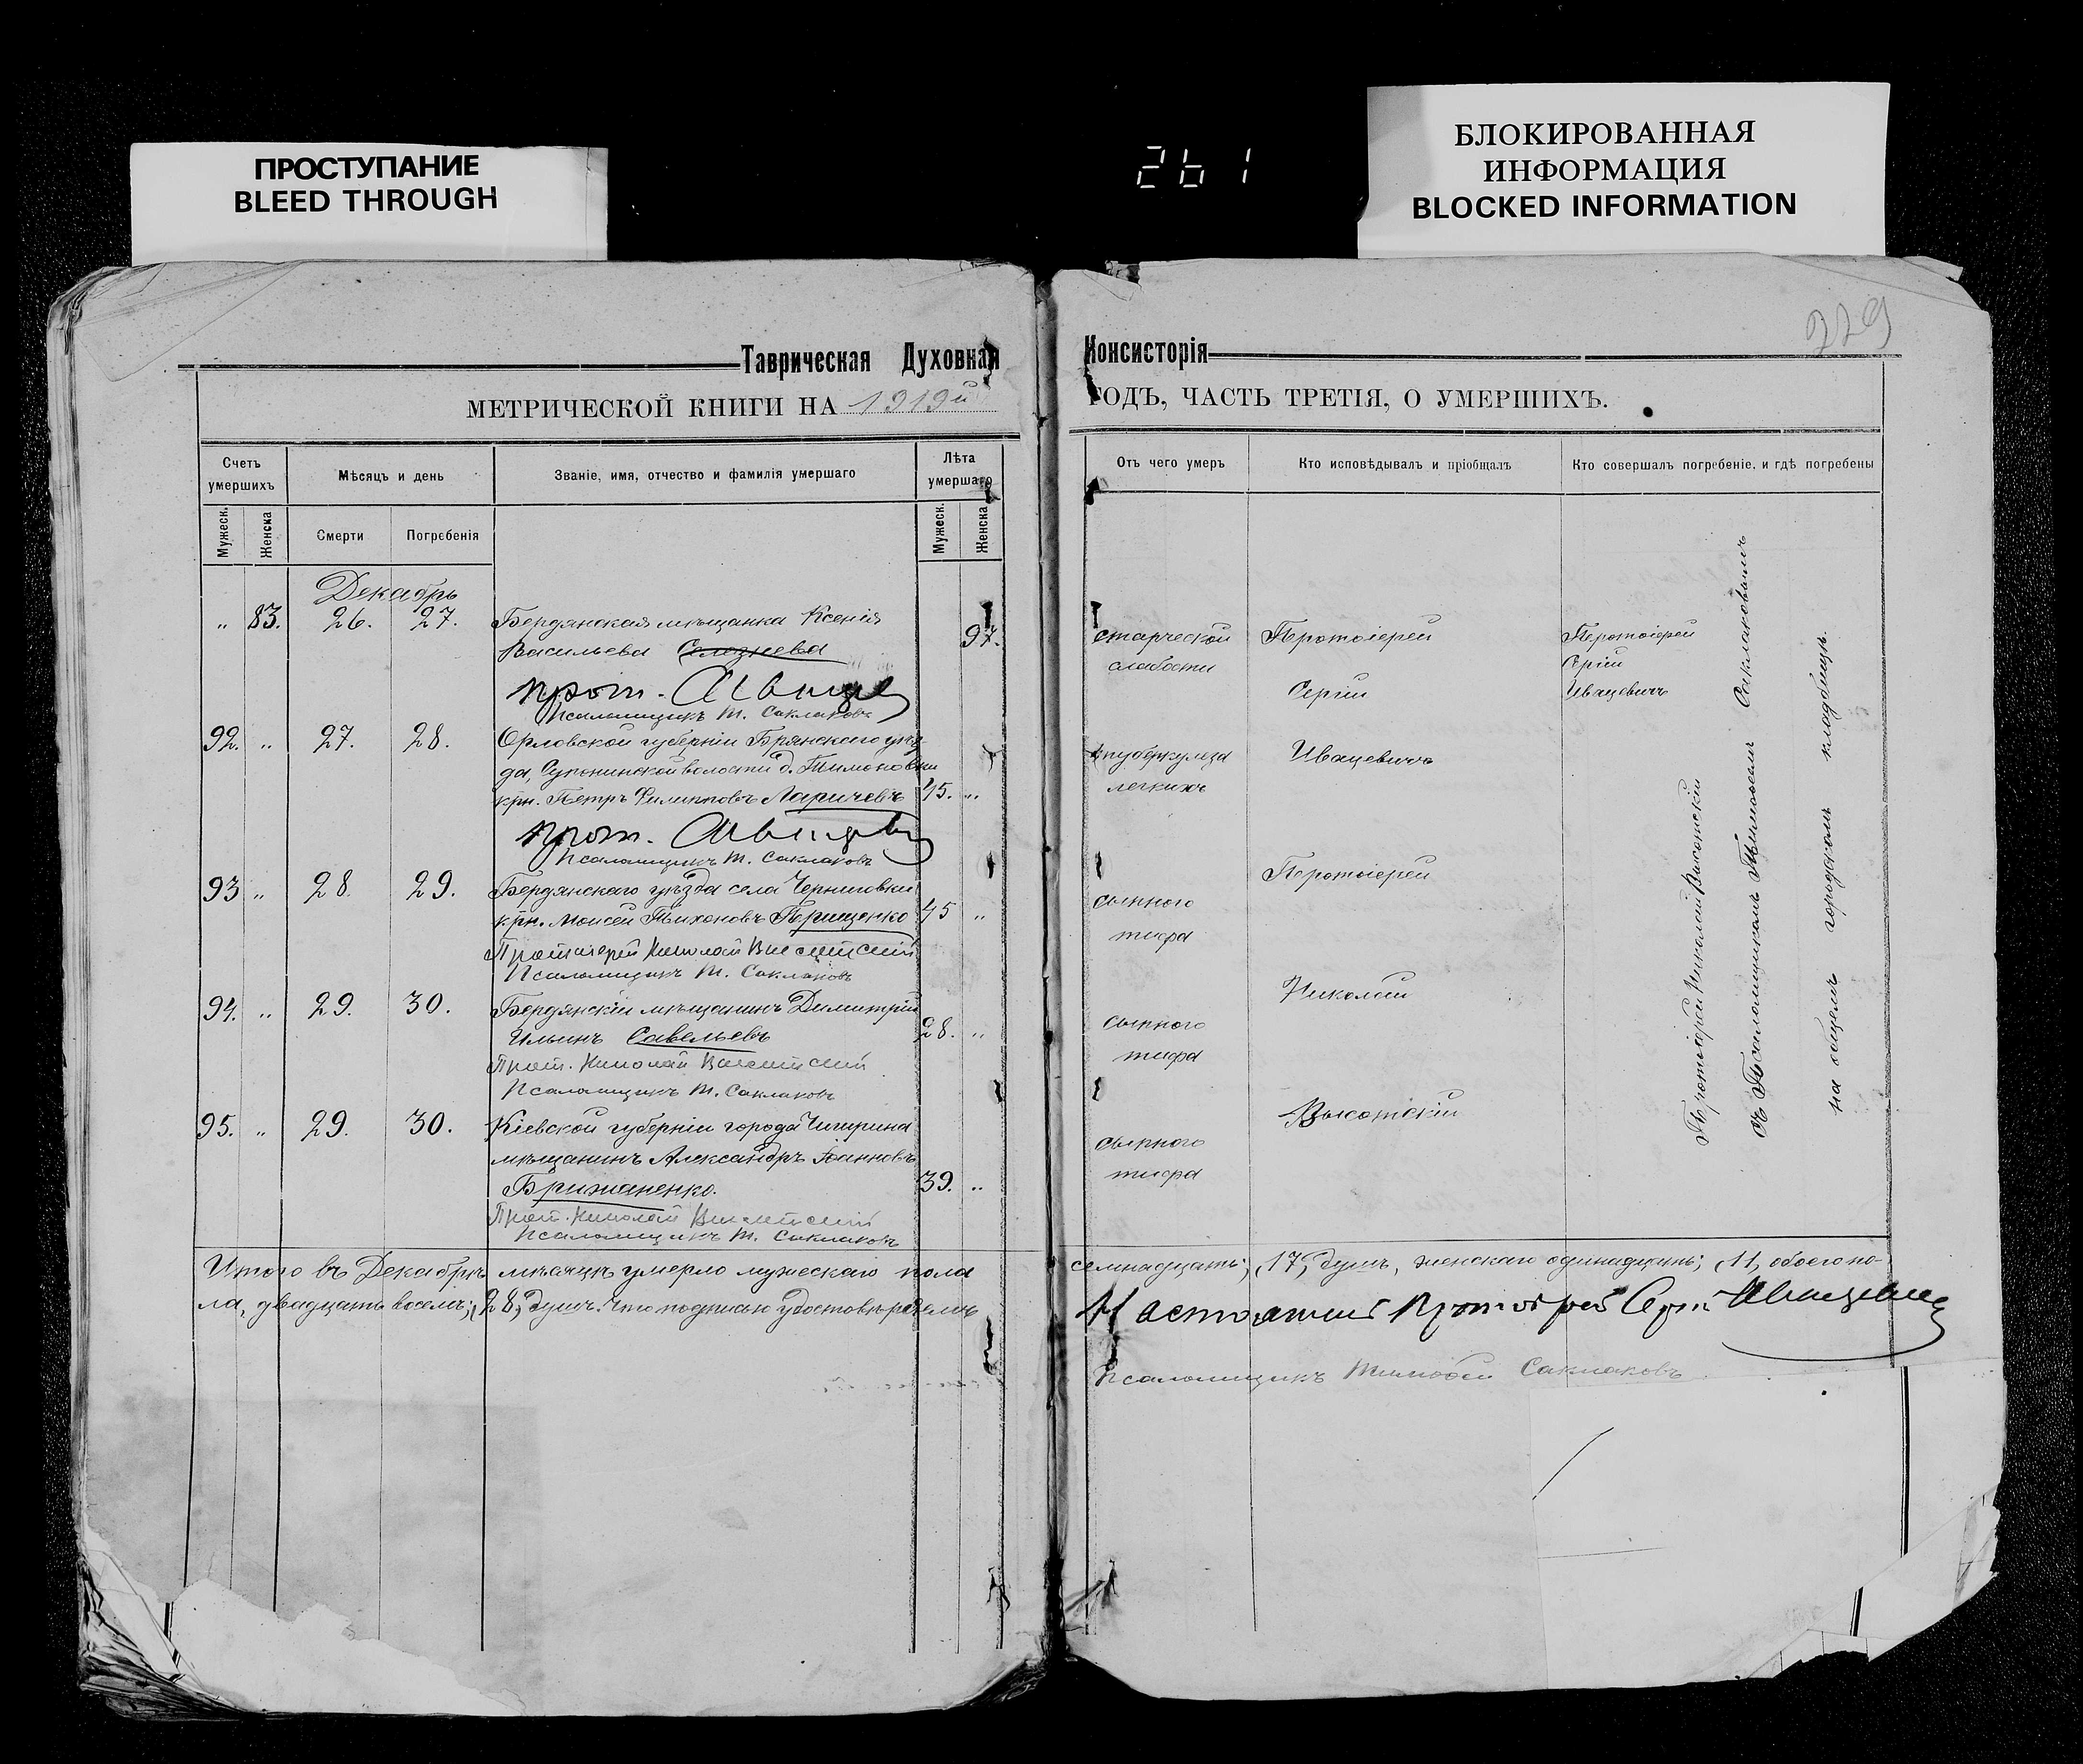 ПРОСТУПАНИЕ
BLEED THROUGH
261
БЛОКИРОВАННАЯ
ИНФОРМАЦИЯ
BLOCKED INFORMATION
229
Таврическая Духовная Консисторія
МЕТРИЧЕСКОЙ КНИГИ НА 1919й ГОДЪ, ЧАСТЬ ТРЕТІЯ, О УМЕРШИХЪ.
Счетъ умершихъ
Мѣсяцъ и день
Званіе, имя, отчество и фамилія умершаго
Лѣта умершаго
Отъ чего умеръ
Кто исповѣдывалъ и пріобщалъ
Кто совершалъ погребеніе, и гдѣ погребены
Мужеск.
Женска
Смерти
Погребенія
Мужеск.
Женска
Декабрь
" 83. 26. 27. Бердянская мѣщанка Ксенія
Васильева Селезнева 97.
прот. С Иванцев
Псаломщикъ Т. Саклаковъ
92. " 27. 28. Орловской губерніи Брянскаго уѣз-
да, Супонинской волости д. Тимоновки
крн. Петръ Филипповъ Ларичевъ 45. "
прот. С Иванцев
Псаломщикъ Т. Саклаковъ
93 " 28. 29. Бердянскаго уѣзда села Черниговки
крн. Моисей Тихоновъ Грищенко 45 "
Протоіерей Николай Высотскій
Псаломщикъ Т. Саклаковъ
94. " 29. 30. Бердянскій мѣщанинъ Димитрій
Ильинъ Савельевъ 28. "
Прот. Николай Высотскій
Псаломщикъ Т. Саклаковъ
95. " 29. 30. Кіевской губерніи города Чигирина
мѣщанинъ Александръ Іоанновъ
Брижаненко. 39. "
Прот. Николай Высотскій
Псаломщикъ Т. Саклаковъ
старческой
слабости
туберкулеза
легкихъ
сыпного
тифа
сыпного
тифа
сыпного
тифа
Протоіерей
Сергій
Ивацевичъ
Протоіерей
Николай
Высотскій
Протоіерей
Сергій
Ивацевичъ
Протоіерей Николай Высотскій
съ Псаломщикомъ Тимофеемъ Саклаковымъ
на общемъ городскомъ кладбищѣ.
Итого въ Декабрѣ мѣсяцѣ умерло мужескаго пола семнадцать; (17) душъ, женскаго одинадцать; (11) обоего по-
ла, двадцать восемь; (28) душъ. Что подписью удостовѣряемъ
Настоятель Протоіерей Сергій Ивацевичъ
Псаломщикъ Тимофей Саклаковъ